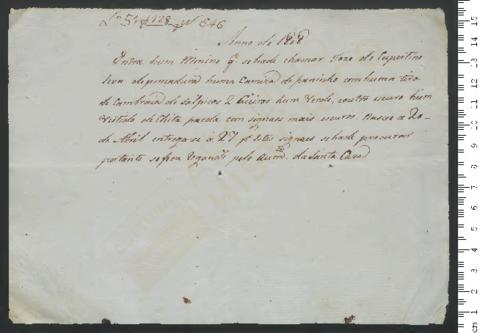 Lº 5º f 128 Nº 646
Anno de 1868
Entra hum Minino q̃ se hade chamar Joze de Cupertino
leva dependurado huma Camiza de paninho com huma tira
de Cambraia de Salpicos 2 Cueiros hum Verde, e outro escuro hum
Vestido de Chita parola com signaes mais escuros. Nasceo a 20
de Abril entregasse a 27 pr estes signaes se hade procurar
portanto se fica Rogando pelo da Santa Caza